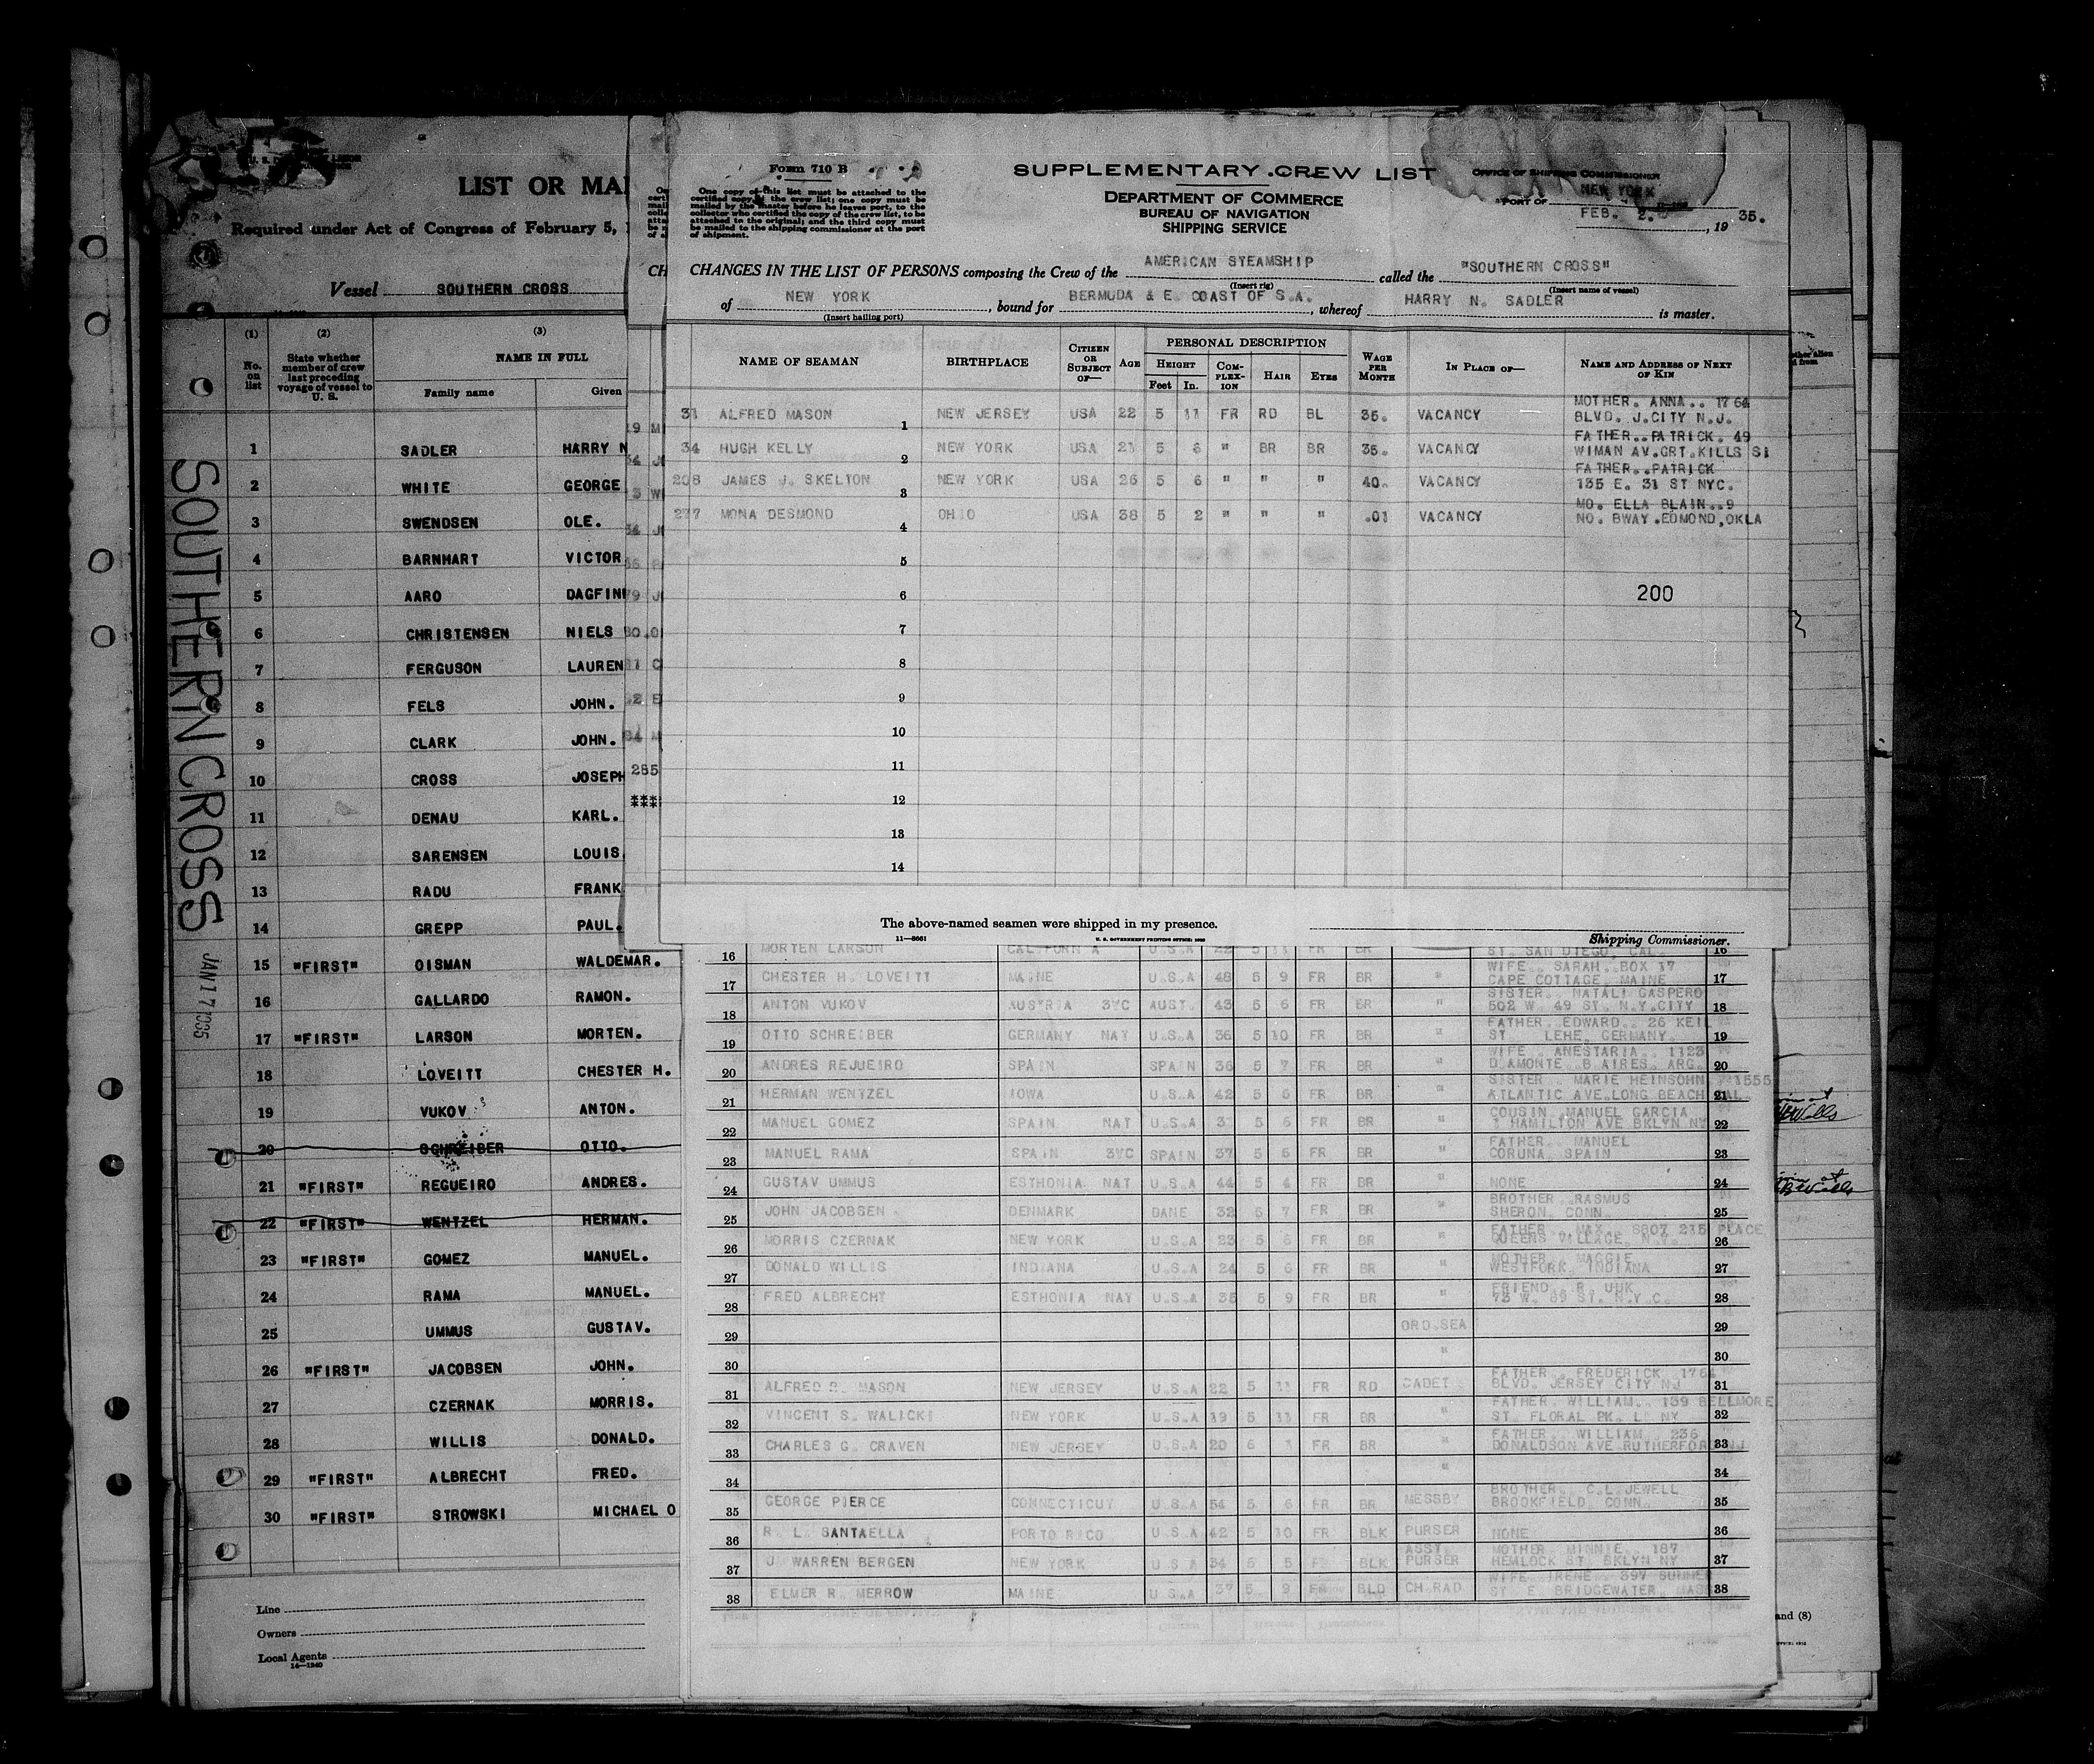 LIST OR MA
Required under Act of Congress of February 5,
Vessel SOUTHERN CROSS
(1) (2) (3)
No. on list
State whether member of crew last preceding voyage of vessel to U. S.
NAME IN FULL
Family name Given
1 SADLER HARRY N
2 WHITE GEORGE
3 SWENDSEN OLE.
4 BARNHART VICTOR
5 AARO DAGFIN
6 CHRISTENSEN NIELS
7 FERGUSON LAUREN
8 FELS JOHN.
9 CLARK JOHN.
10 CROSS JOSEPH
11 DENAU KARL.
12 SARENSEN LOUIS
13 RADU FRANK
14 GREPP PAUL.
15 "FIRST" OISMAN WALDEMAR.
16 GALLARDO RAMON.
17 "FIRST" LARSON MORTEN.
18 LOVEITT CHESTER H.
19 VUKOV ANTON.
20 SCHREIBER OTTO.
21 "FIRST" REGUEIRO ANDRES.
22 "FIRST" WENTZEL HERMAN.
23 "FIRST" GOMEZ MANUEL.
24 RAMA MANUEL.
25 UMMUS GUSTAV.
26 "FIRST" JACOBSEN JOHN.
27 CZERNAK MORRIS.
28 WILLIS DONALD.
29 "FIRST" ALBRECHT FRED.
30 "FIRST" STROWSKI MICHAEL O
Line
Owners
Local Agents
14—1240
SOUTHERN CROSS
JAN 17 1935
285
Form 710 B
One copy of this list must be attached to the
certified copy of the crew list; one copy must be
mailed by the master before he leaves port, to the
collector who certified the copy of the crew list, to be
attached to the original; and the third copy must
be mailed to the shipping commissioner at the port
of shipment.
SUPPLEMENTARY CREW LIST
DEPARTMENT OF COMMERCE
BUREAU OF NAVIGATION
SHIPPING SERVICE
OFFICE OF SHIPPING COMMISSIONER
PORT OF NEW YORK
FEB. 2. , 19 35.
CHANGES IN THE LIST OF PERSONS composing the Crew of the AMERICAN STEAMSHIP called the "SOUTHERN CROSS"
(Insert rig) (Insert name of vessel)
of NEW YORK , bound for BERMUDA & E. COAST OF S.A. , whereof HARRY N. SADLER is master.
(Insert hailing port)
NAME OF SEAMAN BIRTHPLACE CITIZEN OR SUBJECT OF— AGE PERSONAL DESCRIPTION WAGE PER MONTH IN PLACE OF— NAME AND ADDRESS OF NEXT OF KIN
HEIGHT Feet In. COM-PLEX-ION HAIR EYES
31 ALFRED MASON 1 NEW JERSEY USA 22 5 11 FR RD BL 35. VACANCY MOTHER. ANNA.. 1764 BLVD. J.CITY N.J.
34 HUGH KELLY 2 NEW YORK USA 21 5 6 " BR BR 35. VACANCY FATHER..PATRICK. 49 WIMAN AV.GRT.KILLS SI
208 JAMES J. SKELTON 3 NEW YORK USA 26 5 6 " " " 40. VACANCY FATHER..PATRICK 135 E. 31 ST NYC.
277 MONA DESMOND 4 OHIO USA 38 5 2 " " " .01 VACANCY MO. ELLA BLAIN..9 NO. BWAY.EDMOND,OKLA
5
6 200
7
8
9
10
11
12
13
14
The above-named seamen were shipped in my presence.
11—8661 U. S. GOVERNMENT PRINTING OFFICE: 1930
Shipping Commissioner.
16 MORTEN LARSON CALIFORNIA U.S.A 22 5 11 FR BR ST. SAN DIEGO, CAL. 16
17 CHESTER H. LOVEITT MAINE U.S.A 48 5 9 FR BR " WIFE.. SARAH..BOX 17 CAPE COTTAGE, MAINE 17
18 ANTON VUKOV AUSTRIA 3YC AUST. 43 5 6 FR BR " SISTER. NATALI GASPERO 502 W. 49 ST. N.Y.CITY 18
19 OTTO SCHREIBER GERMANY NAT U.S.A 36 5 10 FR BR " FATHER. EDWARD.. 26 KEIL ST. LEHE, GERMANY. 19
20 ANDRES REJUEIRO SPAIN SPAIN 36 5 7 FR BR " WIFE. ANESTARIA.. 1123 DIAMONTE. B.AIRES. ARG. 20
21 HERMAN WENTZEL IOWA U.S.A 42 5 6 FR BR " SISTER. MARIE HEINSOHN. 1555 ATLANTIC AVE.LONG BEACH CAL. 21
22 MANUEL GOMEZ SPAIN NAT U.S.A 5 6 FR BR " COUSIN. MANUEL GARCIA HAMILTON AVE BKLYN NY 22
23 MANUEL RAMA SPAIN 3YC SPAIN 37 5 6 FR BR " FATHER. MANUEL CORUNA, SPAIN 23
24 GUSTAV UMMUS ESTHONIA NAT U.S.A 44 5 4 FR BR " NONE 24
25 JOHN JACOBSEN DENMARK DANE 32 5 7 FR BR " BROTHER. RASMUS SHERON. CONN. 25
26 MORRIS CZERNAK NEW YORK U.S.A 23 5 6 FR BR " FATHER. MAX. 8807 215 PLACE QUEENS VILLAGE, N.Y. 26
27 DONALD WILLIS INDIANA U.S.A 24 5 6 FR BR " MOTHER. MAGGIE WESTFORK, INDIANA 27
28 FRED ALBRECHT ESTHONIA NAT U.S.A 35 5 9 FR BR " FRIEND. R. UUK 73 W. 89 ST. N.Y.C. 28
29 ORD.SEA 29
30 " 30
31 ALFRED R. MASON NEW JERSEY U.S.A 22 5 11 FR RD CADET FATHER. FREDERICK 1764 BLVD. JERSEY CITY NJ 31
32 VINCENT S. WALICKI NEW YORK U.S.A 19 5 11 FR BR " FATHER. WILLIAM. 139 BELLMORE ST. FLORAL PK. L NY 32
33 CHARLES G. CRAVEN NEW JERSEY U.S.A 20 6 1 FR BR " FATHER. WILLIAM. 236 DONALDSON AVE RUTHERFOR NJ 33
34 " 34
35 GEORGE PIERCE CONNECTICUT U.S.A 54 5 6 FR BR MESSBY BROTHER. C.L.JEWELL BROOKFIELD, CONN. 35
36 R. L. SANTAELLA PORTO RICO U.S.A 42 5 10 FR BLK PURSER NONE 36
37 J. WARREN BERGEN NEW YORK U.S.A 34 5 5 BLK ASST. PURSER MOTHER. MINNIE.. 187 HEMLOCK ST. BKLYN NY 37
38 ELMER R. MERROW MAINE U.S.A 37 5 9 FR BLD CH.RAD WIFE. IRENE. 397 SUMMER ST E. BRIDGEWATER, MASS 38
and (8)